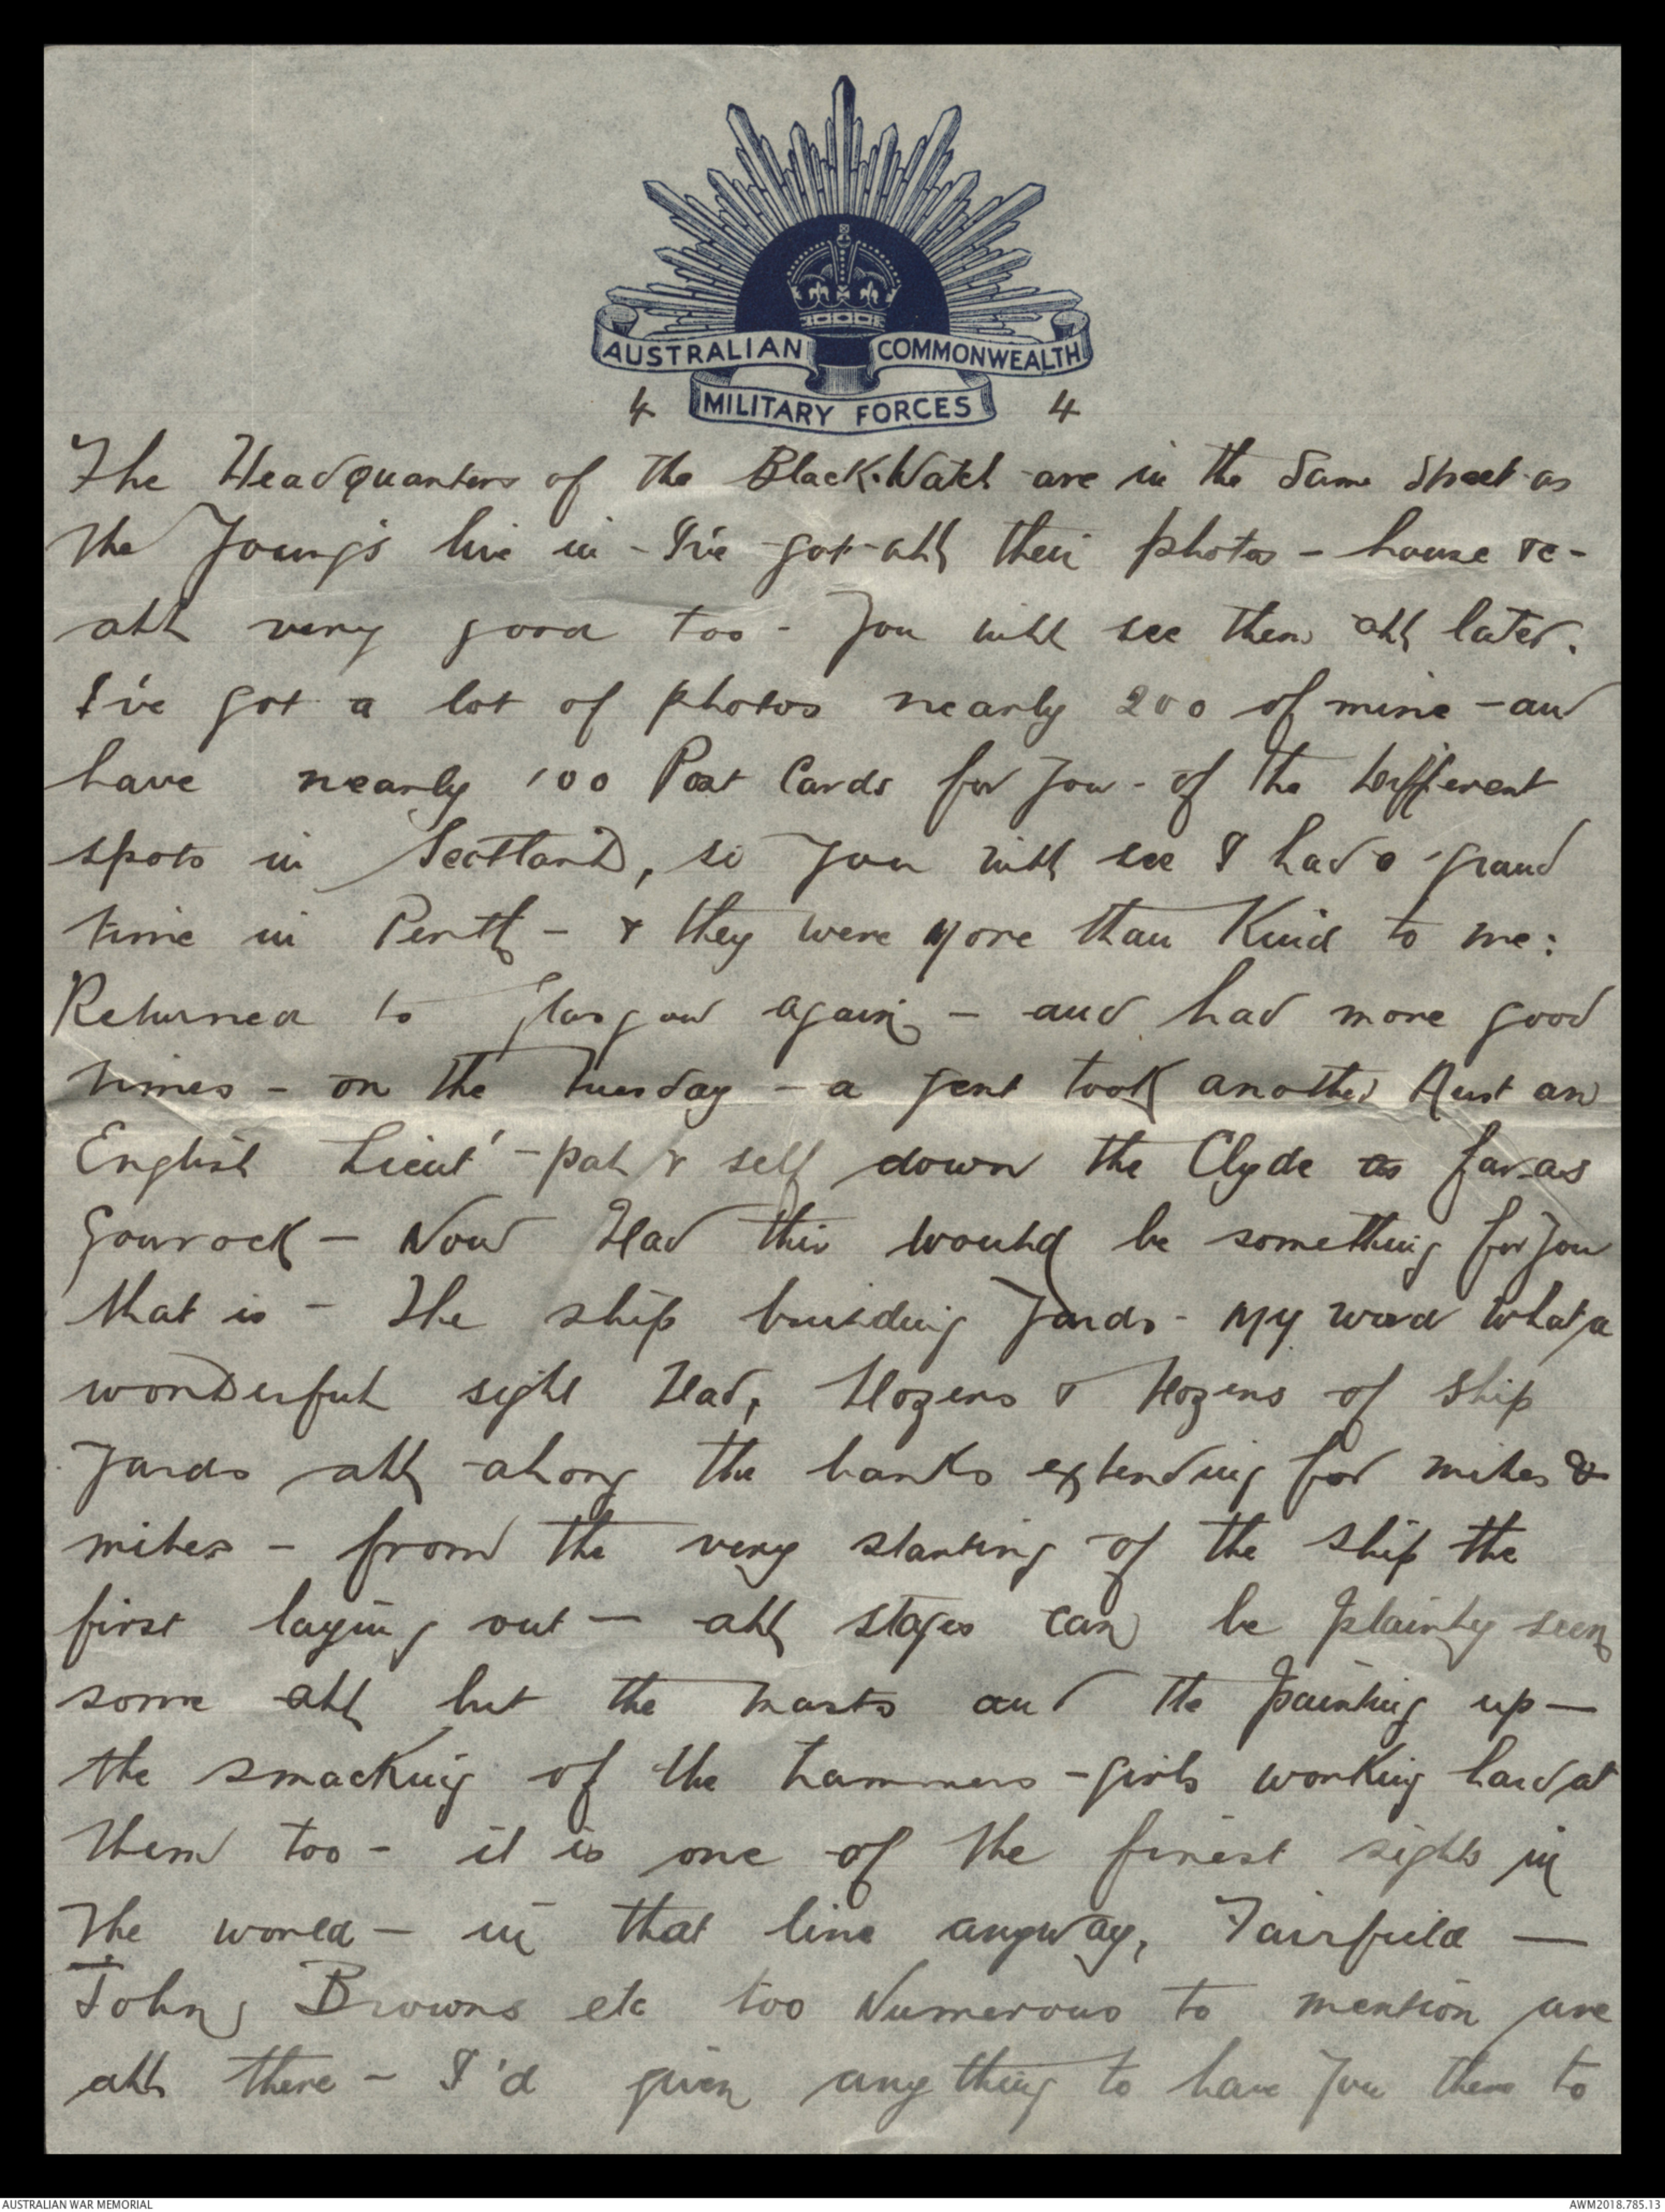 AUSTRALIAN COMMONWEALTH
4 MILITARY FORCES 4
The Headquarters of the Black Watch are in the same street as
the Young's live in - I've got all their photos - house &c -
all very good too - you will see them all later.
I've got a lot of photos nearly 200 of mine - and
have nearly 100 Post Cards for you - of the different
spots in Scotland, so you will see I had a grand
time in Perth - & they were More than Kind to me:
Returned to Glasgow again - and had more good
times - on the Tuesday - a gent took another Aust an
English Lieut' - pal & self down the Clyde as far as
Gourock - Now Dad this would be something for you
that is - The ship building yards - My word what a
wonderful sight Dad, Dozens & Dozens of ship
yards all along the banks extending for miles &
miles - from the very starting of the ship the
first laying out - all stages can be plainly seen
some all but the masts and the painting up -
the smacking of the hammers - girls working hard at
them too - it is one of the finest sights in
The world - in that line anyway, Fairfield -
John Browns etc too Numerous to mention are
all there - I'd given anything to have you there to
AUSTRALIAN WAR MEMORIAL
AWM2018.785.13